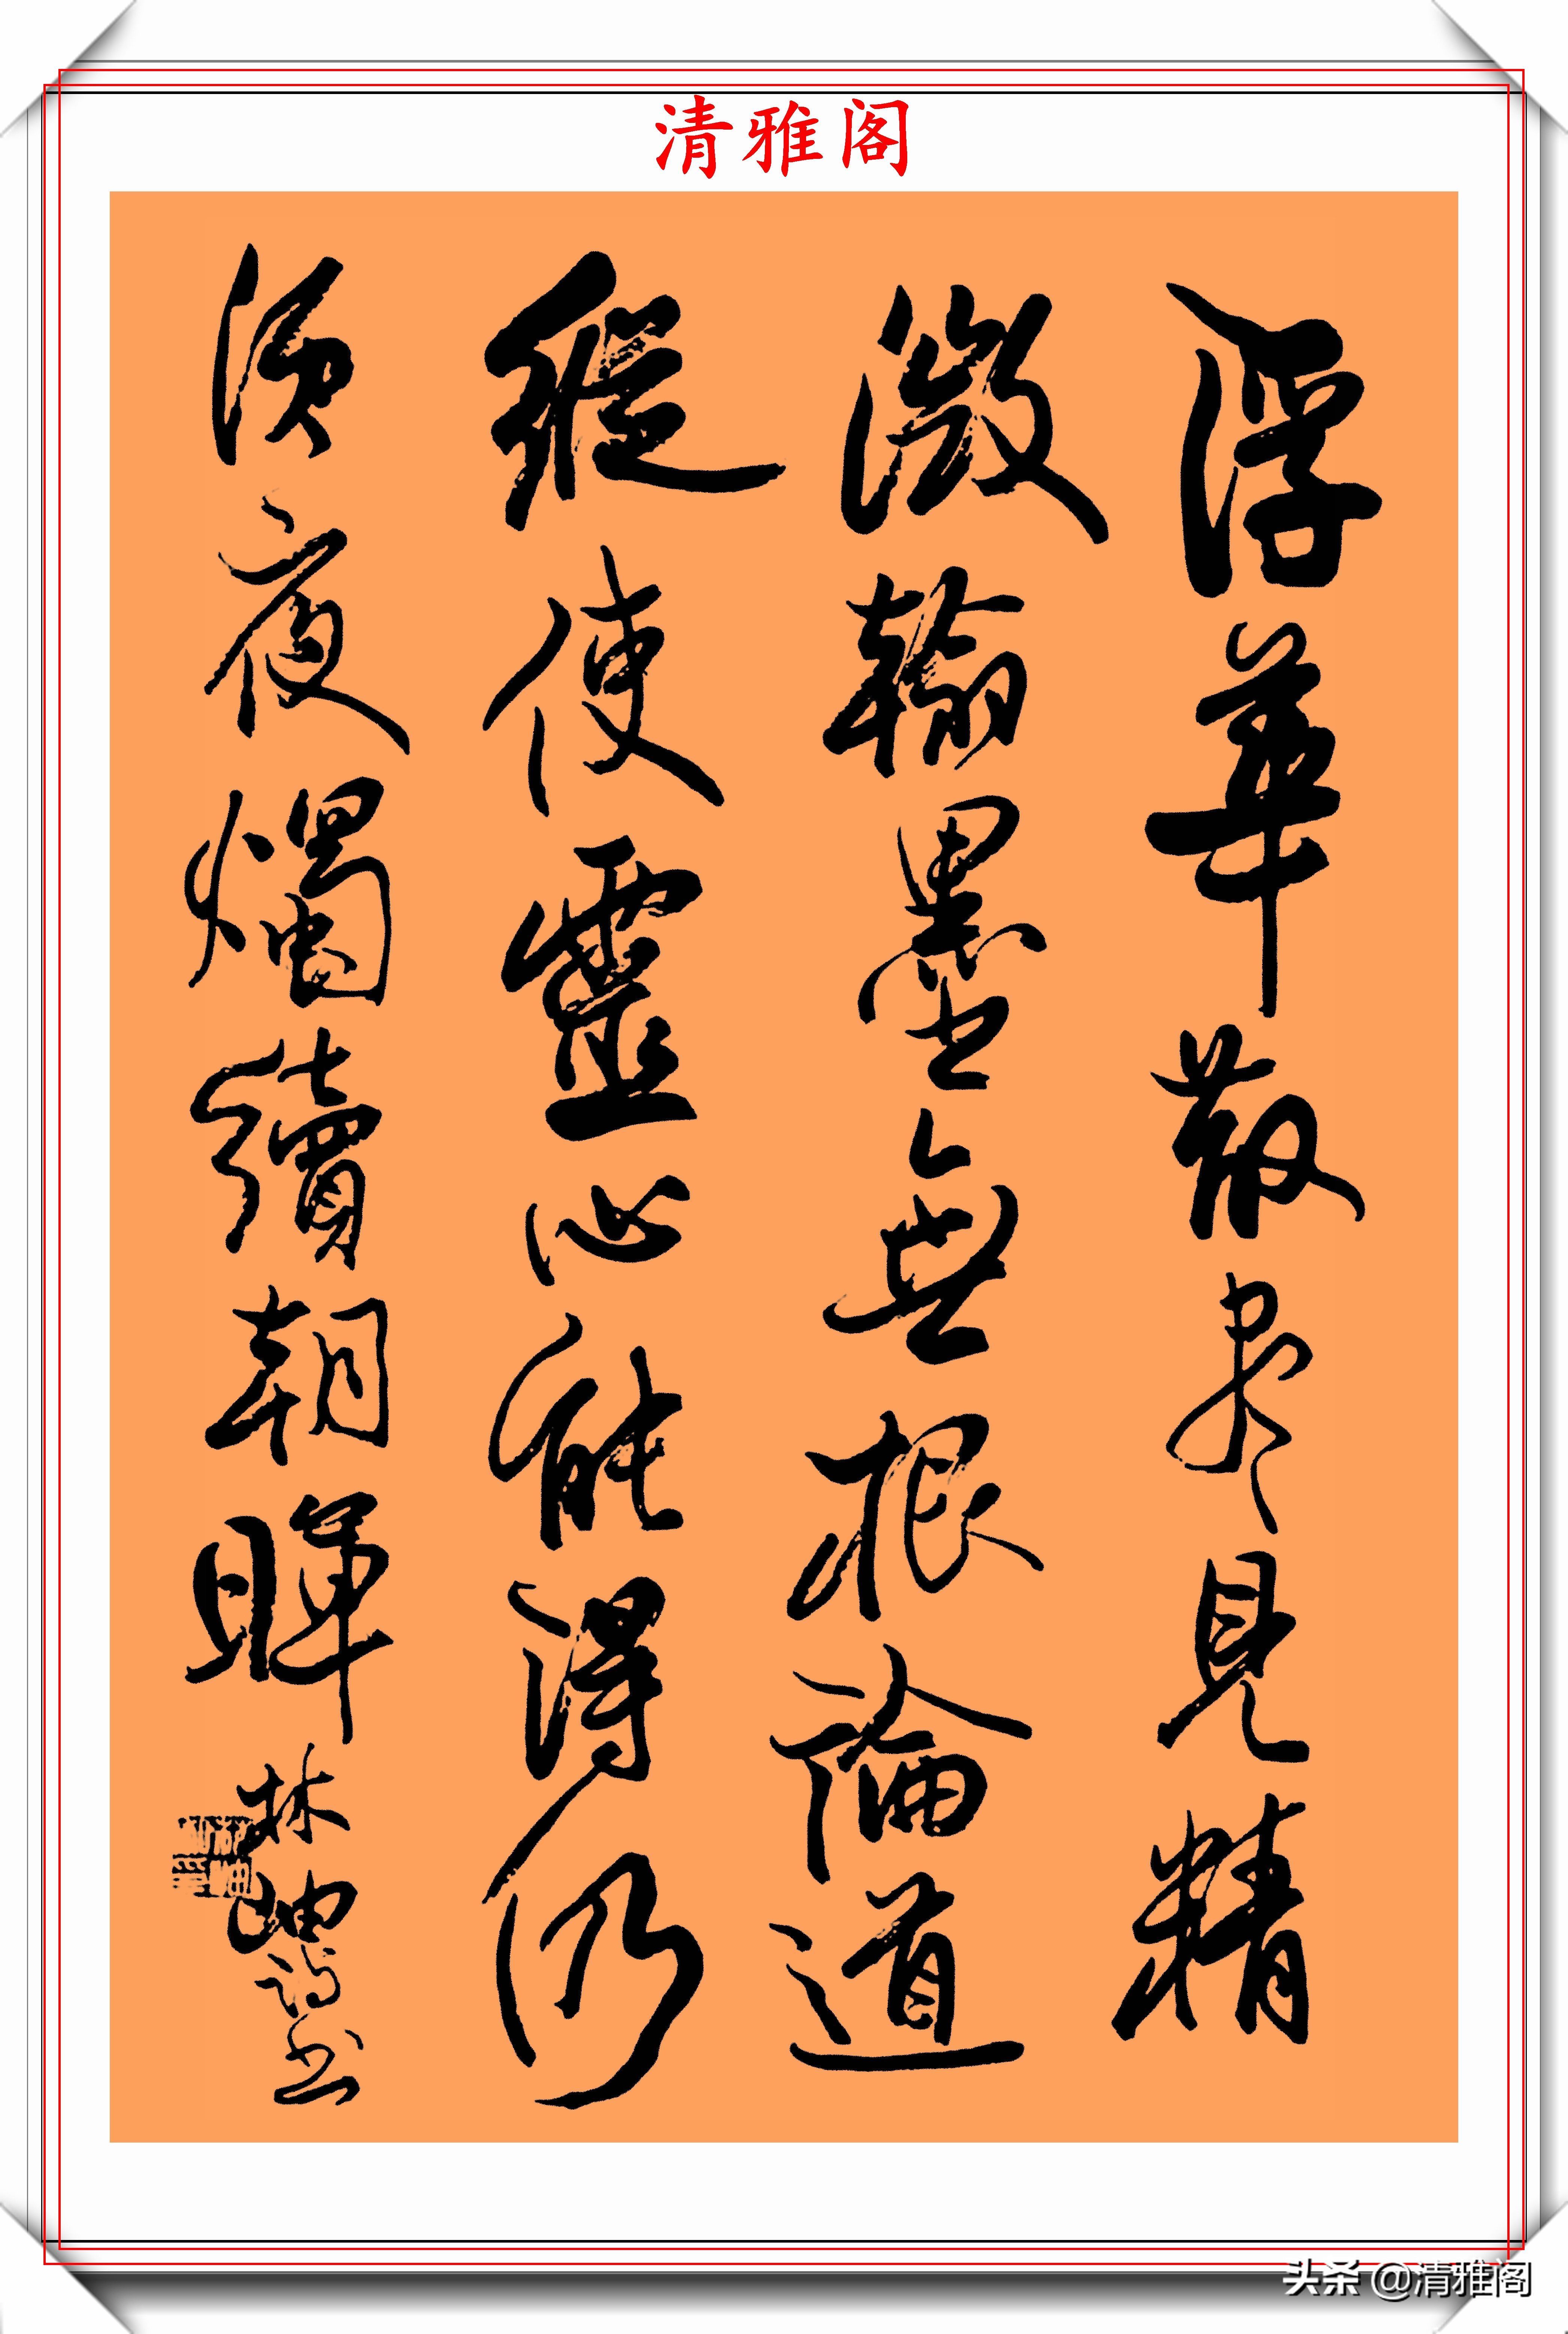 清雅阁
浮華散盡見精
微翰墨無根論道
縱使靈心能得仍
須夜燭續朝暉
林岫詩書
头条 @清雅阁